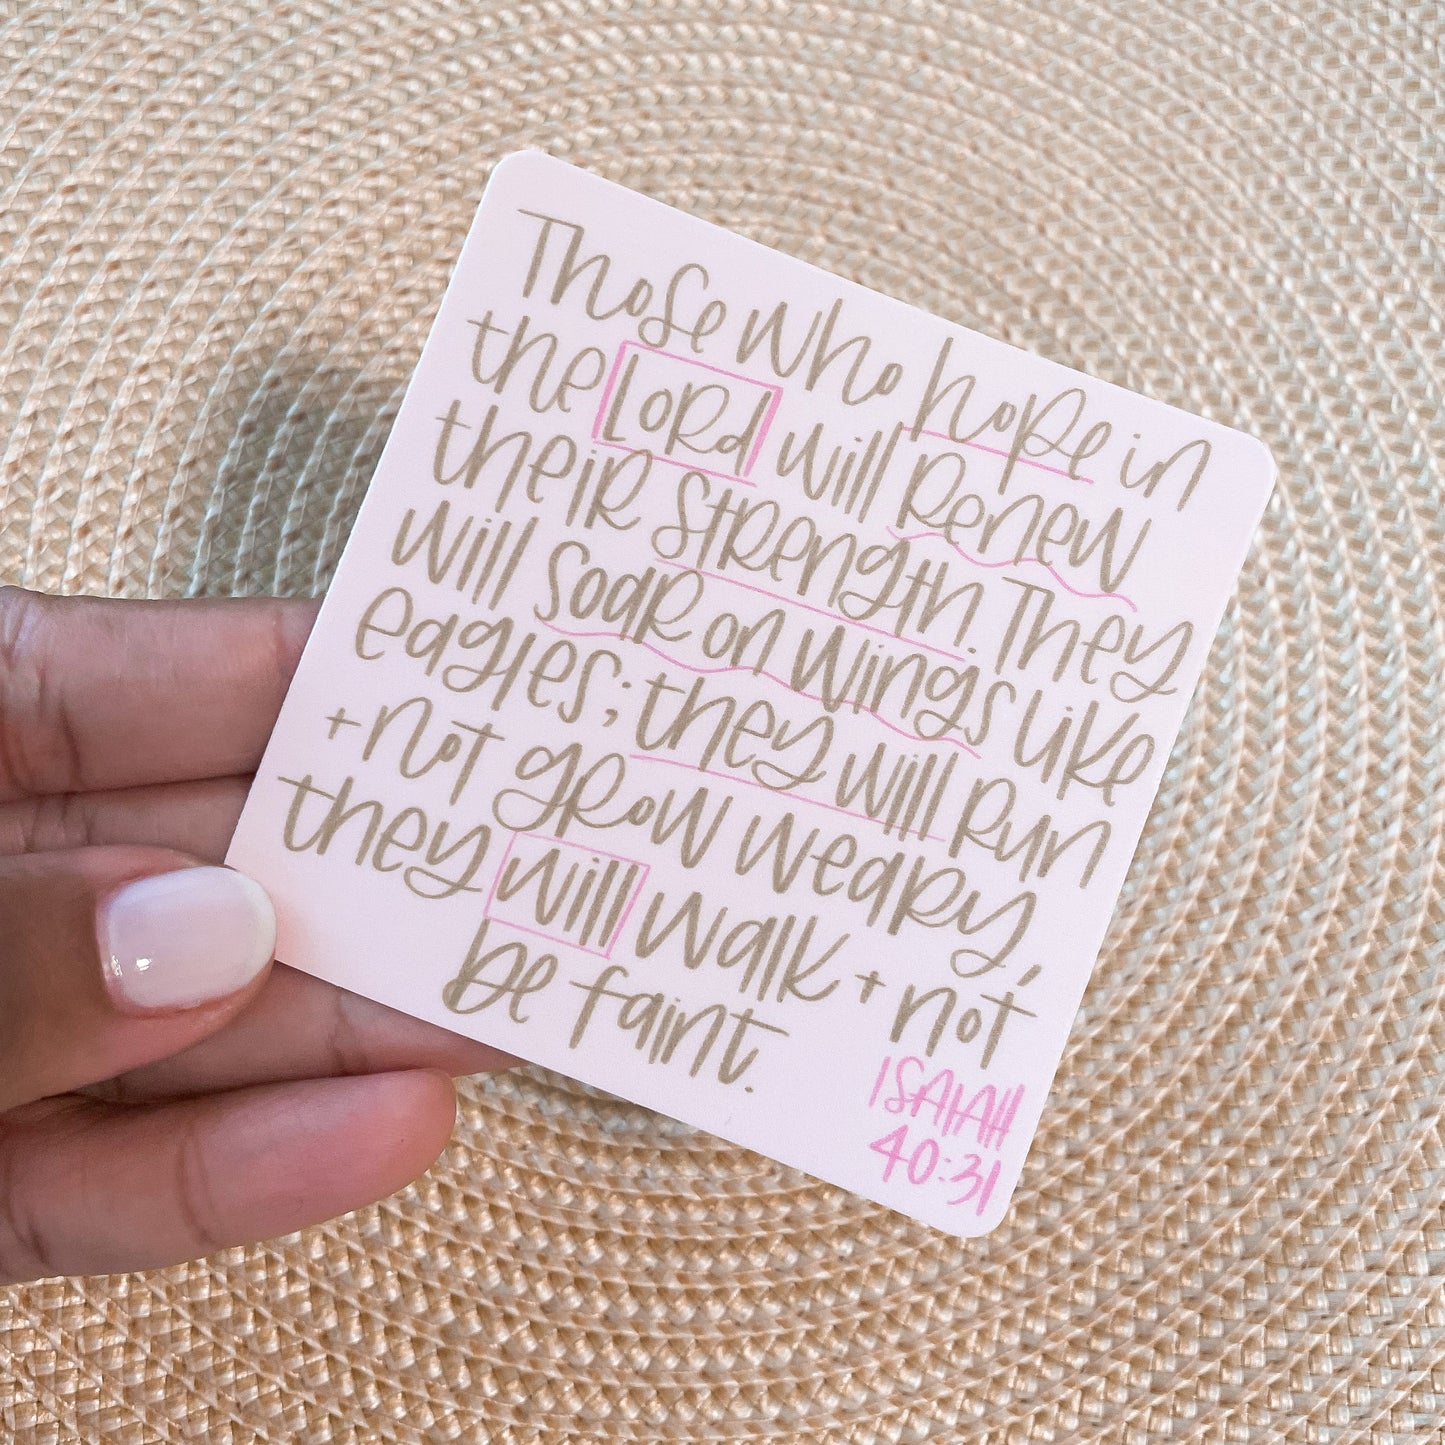 Those who hope in
the Lord will Renew
their strength. They
will soar on wings like
eagles; they will Run
+ not grow weary,
they will walk + not
be faint.
ISAIAH
40:31